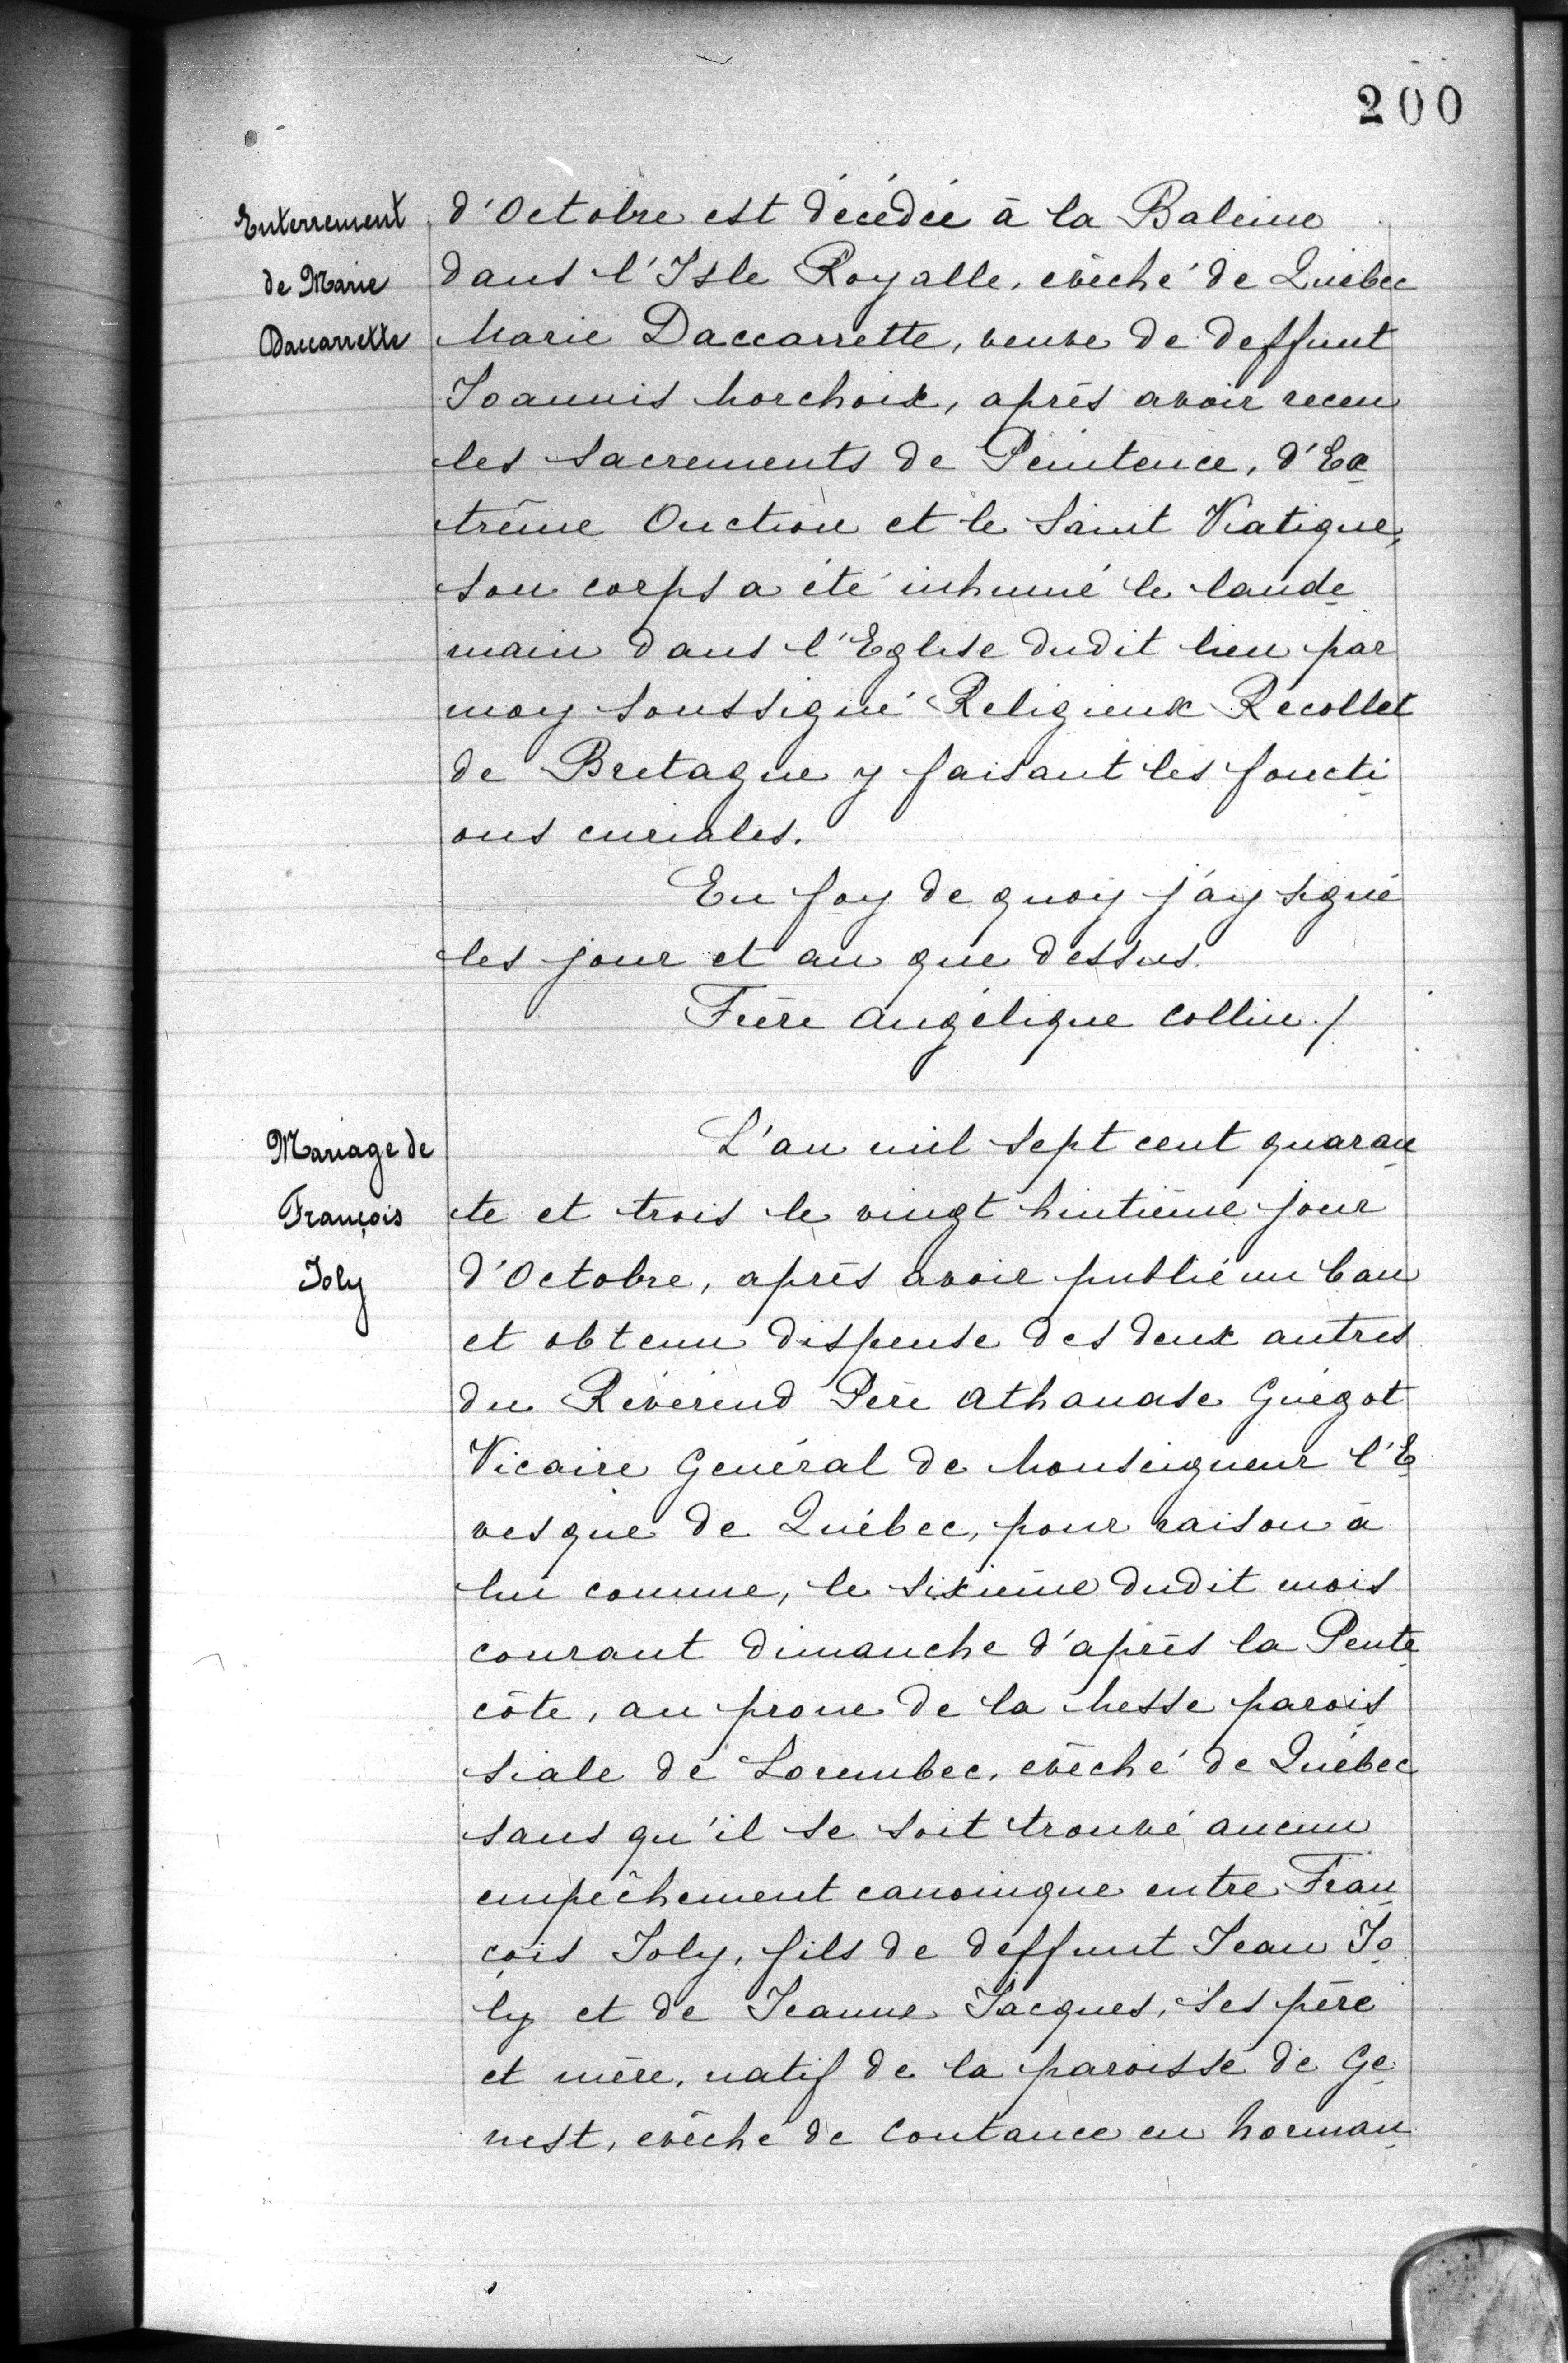 200
Enterrement
de Marie
Daccarrette
d'Octobre est décédée à la Baleine
dans l'Isle Royalle, évêché de Québec
Marie Daccarrette, veuve de deffunt
Joannis Morchoix, après avoir receu
les Sacrements de Penitence, d'Ex
trême Onction et le Saint Viatique,
son corps a été inhumé le lande
main dans l'Eglise dudit lieu par
moy soussigné Religieux Récollet
de Bretagne y faisant les foncti
ons curiales.
En foy de quoy j'ay signé
les jour et an que dessus.
Frère Angélique Collin./
Mariage de
François
Joly
L'an mil sept cent quaran
te et trois le vingt huitième jour
d'Octobre, après avoir publié un ban
et obtenu dispense des deux autres
du Révérend Père Athanase Guégot
Vicaire Général de Monseigneur l'E
vesque de Québec, pour raison à
lui connue, le sixième dudit mois
courant dimanche d'après la Pente
côte, au prone de la Messe parois
siale de Lorembec, évêché de Québec
sans qu'il se soit trouvé aucun
empêchement canonique entre Fran
çois Joly, fils de deffunt Jean Jo
ly et de Jeanne Jacques, ses père
et mère, natif de la paroisse de Ge
nest, evêché de Coutance en Norman